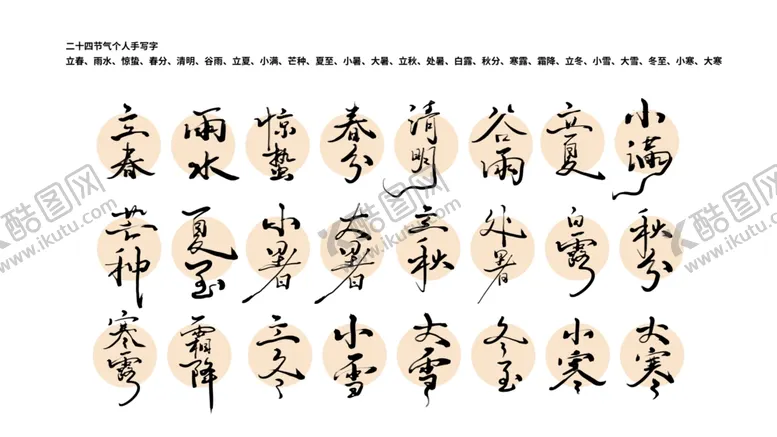 二十四节气个人手写字
立春、雨水、惊蛰、春分、清明、谷雨、立夏、小满、芒种、夏至、小暑、大暑、立秋、处暑、白露、秋分、寒露、霜降、立冬、小雪、大雪、冬至、小寒、大寒
立春 雨水 惊蛰 春分 清明 谷雨 立夏 小满
芒种 夏至 小暑 大暑 立秋 处暑 白露 秋分
寒露 霜降 立冬 小雪 大雪 冬至 小寒 大寒
酷图网
www.ikutu.com
酷图网
www.ikutu.com
酷图网
www.ikutu.com